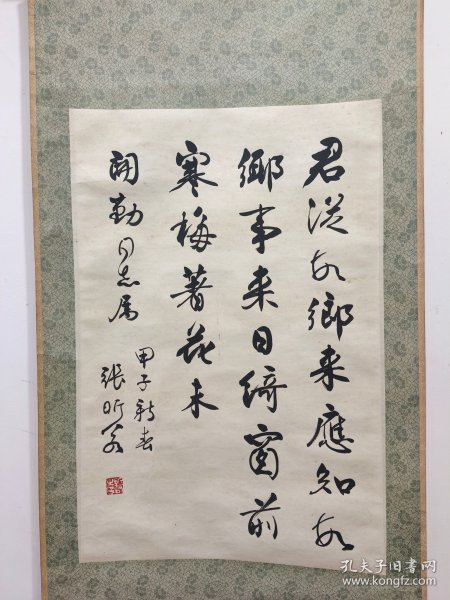 君從故鄉來應知故
鄉事来日綺窗前
寒梅著花未
開勤同志属
甲子新春
張昕若
孔夫子旧书网
www.kongfz.com